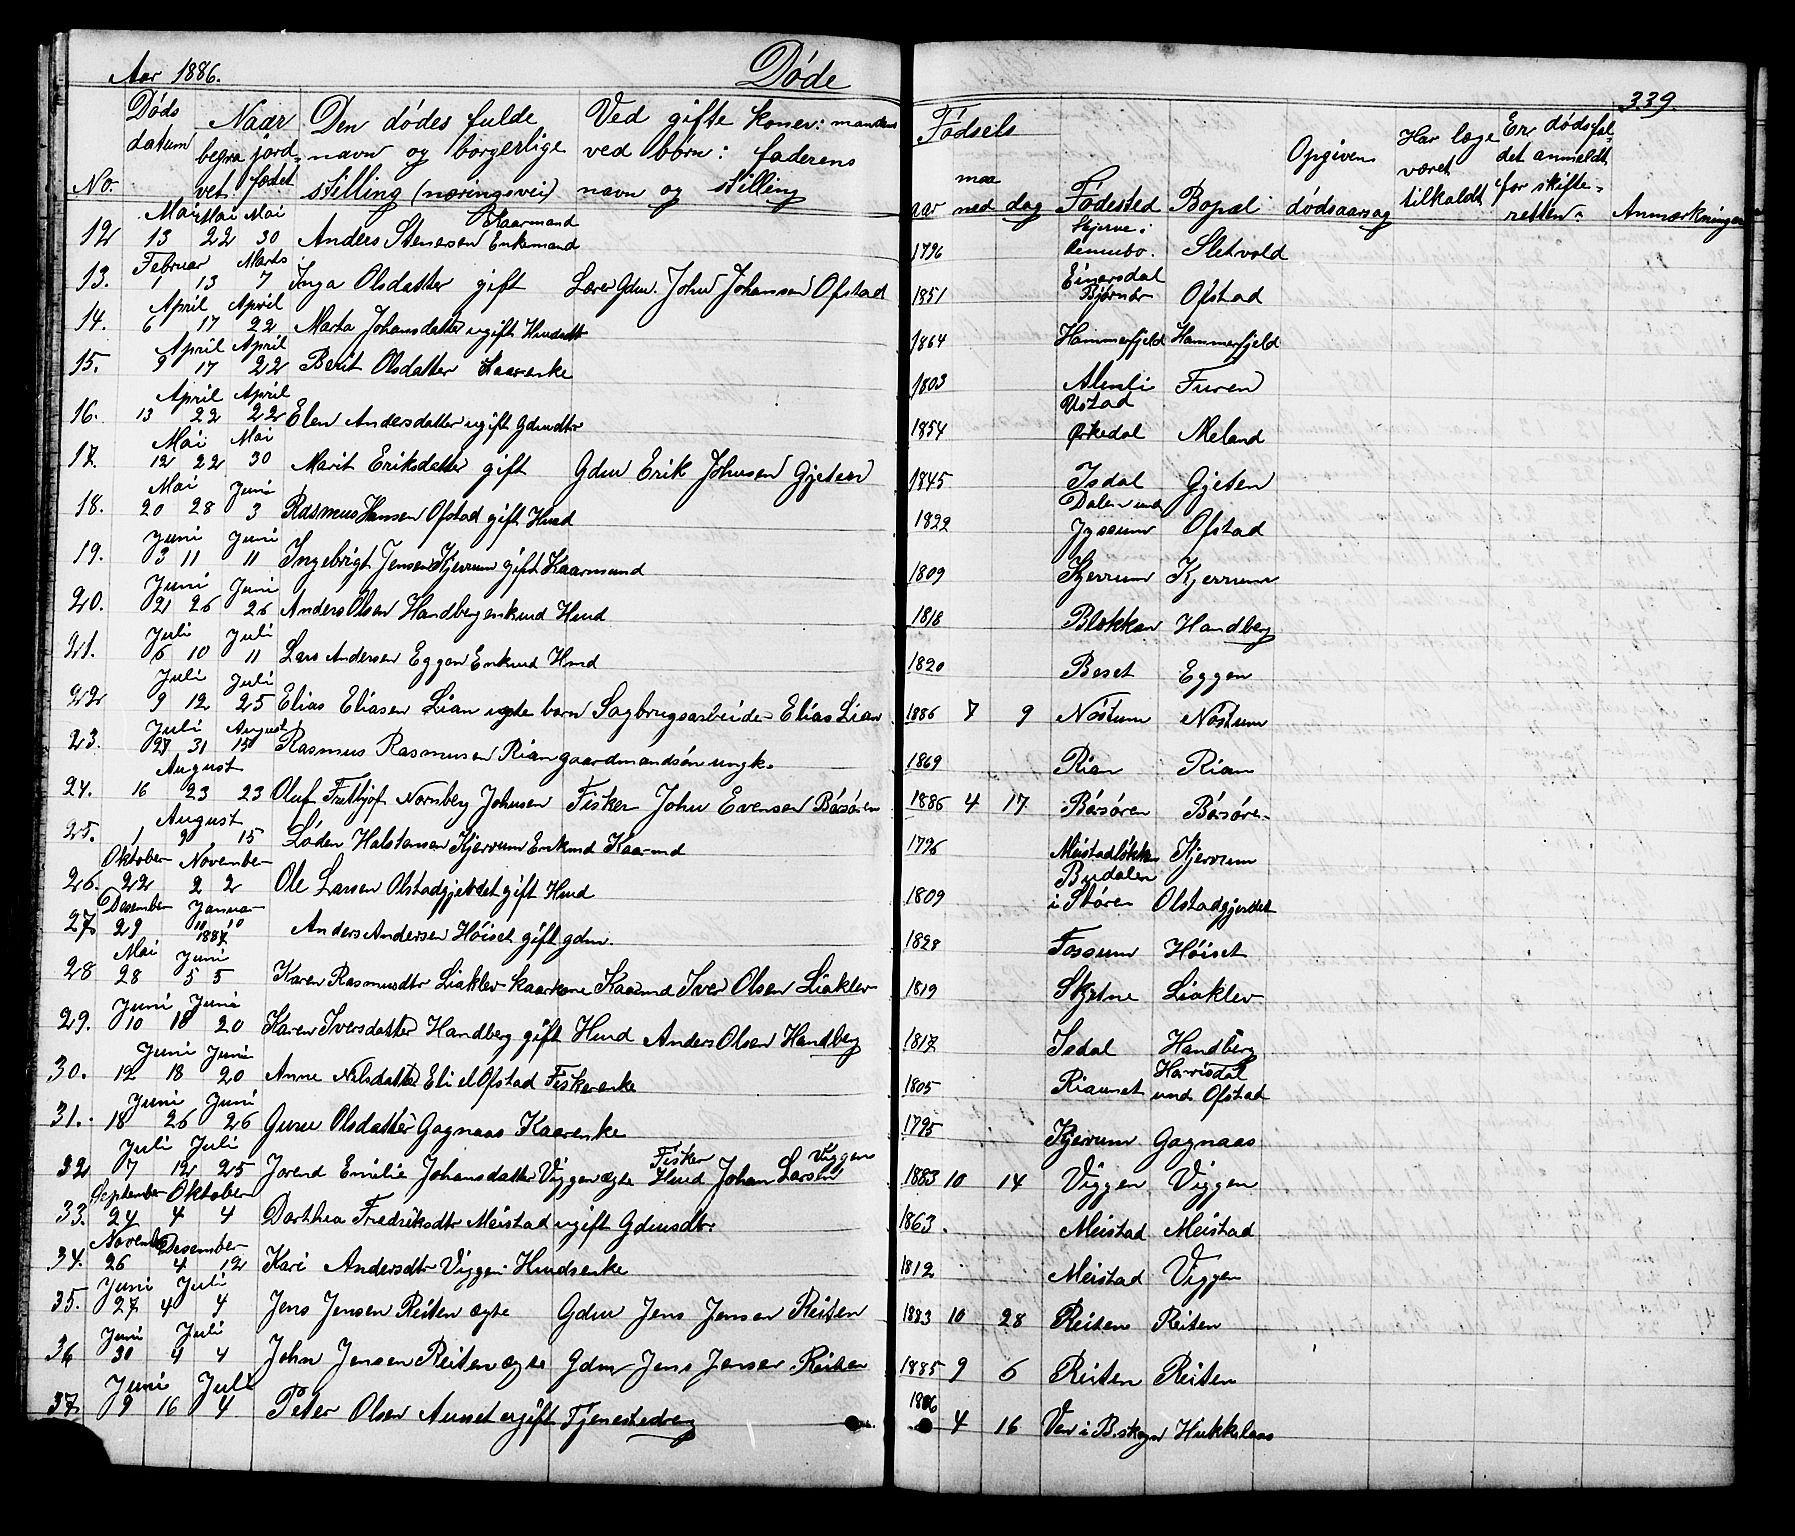 Aar 1886. Døde 339.
No. Døds datum Naar begravet jordfæstet Den dødes fulde navn og borgerlige stilling (næringsvei) Ved gifte koner: mandens ved børn: faderens navn og stilling Fødsels aar maaned dag Fødested Bopæl Opgiven dødsaarsag Har læge været tilkaldt Er dødsfaldet anmeldt for skifteretten Anmærkninger
12 Mai 13 Mai 22 Mai 30 Anders Stenesen Kaarmand Enkemand 1796 Rennebo. Sletvold
13. Februar 1 13 Marts 7 Inga Olsdatter gift Lærer Gdm. John Johansen Ofstad 1851 Einarsdal Bjørnør Ofstad
14. April 6 17 April 22 Marta Johansdatter ugift Hmdatt 1864 Hammerfjeld Hammerfjeld
15. April 9 17 April 22 Berit Olsdatter Kaarenke 1803 Almli Furen
16. April 13 22 April 22 Elen Andersdatter ugift Gdmdtr 1854 Ustad Ørkedal Meland
17. Mai 12 22 Mai 30 Marit Eriksdatter gift Gdm Erik Johnsen Gjeten 1845 Isdal Gjeten
18. Mai 20 28 Juni 3 Rasmus Hansen Ofstad gift Hmd 1822 Dalen und Ofstad
19. Juni 3 11 Juni 11 Ingebrigt Jensen Kjerrum gift Kaarmand 1809 Kjerrum Kjerrum
20. Juni 21 26 Juni 26 Anders Olsen Handberg enkmd Hmd 1818 Blokkan Handberg
21. Juli 6 10 Juli 11 Lars Andersen Eggen Enkmd Hmd 1820 Beset Eggen
22 Juli 9 12 Juli 25 Elias Eliasen Lian ægte barn Sagbrugsarbeider Elias Lian 1886 7 9 Nostum Nostum
23. Juli 27 31 August 15 Rasmus Rasmusen Rian gaardmandsøn ungk. 1869 Rian Rian
24. August 16 23 23 Oluf Frithjof Nornberg Johnsen Fisker John Evensen Børsøren 1886 4 17 Børsøren Børsøren
25. August 1 15 Løden Halstensen Kjerrum Enkmd Kaarmd 1796 Meistadløkken Kjerrum
26. Oktober 22 November 2 2 Ole Larsen Olstadgjerdet gift Hmd 1809 Budalen i Støren Olstadgjerdet
27. Desember 29 Januar 10 10 1887 Anders Andersen Høiset gift gdm. 1828 Fossum Høiset
28 Mai 28 Juni 5 5 Karen Rasmusdtr Liaklev kaarkone Kaarmd Iver Olsen Liaklev 1819 Skjetne Liaklev
29. Juni 10 18 Juni 20 Karen Iversdatter Handberg gift Hmd Anders Olsen Handberg 1817 Isdal Handberg
30. Juni 12 18 Juni 20 Anne Nilsdatter Eli el Ofstad Fiskerenke 1805 Riaunet Harrisdal und Ofstad
31. Juni 18 26 Juni 26 Guru Olsdatter Gagnaas Kaarenke 1795 Kjerrum Gagnaas
32 Juli 7 12 Juli 25 Jorend Emilie Johansdatter Viggen ægte Fisker Hmd Johan Larsen Viggen 1883 10 14 Viggen Viggen
33. September 24 Oktober 4 4 Dorthea Fredriksdtr Meistad ugift Gdmsdtr. 1863. Meistad Meistad
34. November 26 Desember 4 12 Kari Andersdtr Viggen Hmdsenke 1812 Meistad Viggen
35. Juni 27 Juli 4 4 Jens Jensen Reiten ægte Gdm Jens Jensen Reiten 1883 10 28 Reiten Reiten
36 Juni 30 Juli 4 4 John Jensen Reiten ægte Gdm Jens Jensen Reiten 1885 9 6 Reiten Reiten
37. Juni 9 16 Juli 4 Peter Olsen Aunet ugift Tjenestedreng 4 16 Ven i B.skogn Hukkelaas